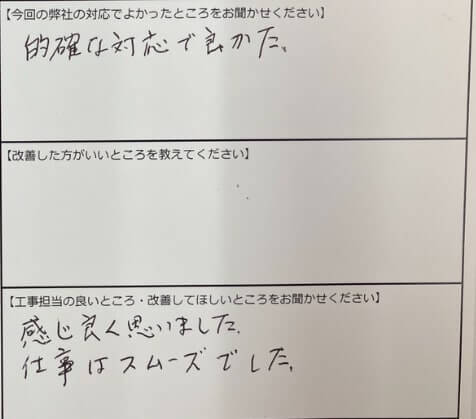 【今回の弊社の対応でよかったところをお聞かせください】
的確な対応で良かた。
【改善した方がいいところを教えてください】
【工事担当の良いところ・改善してほしいところをお聞かせください】
感じ良く思いました。
仕事はスムーズでした。